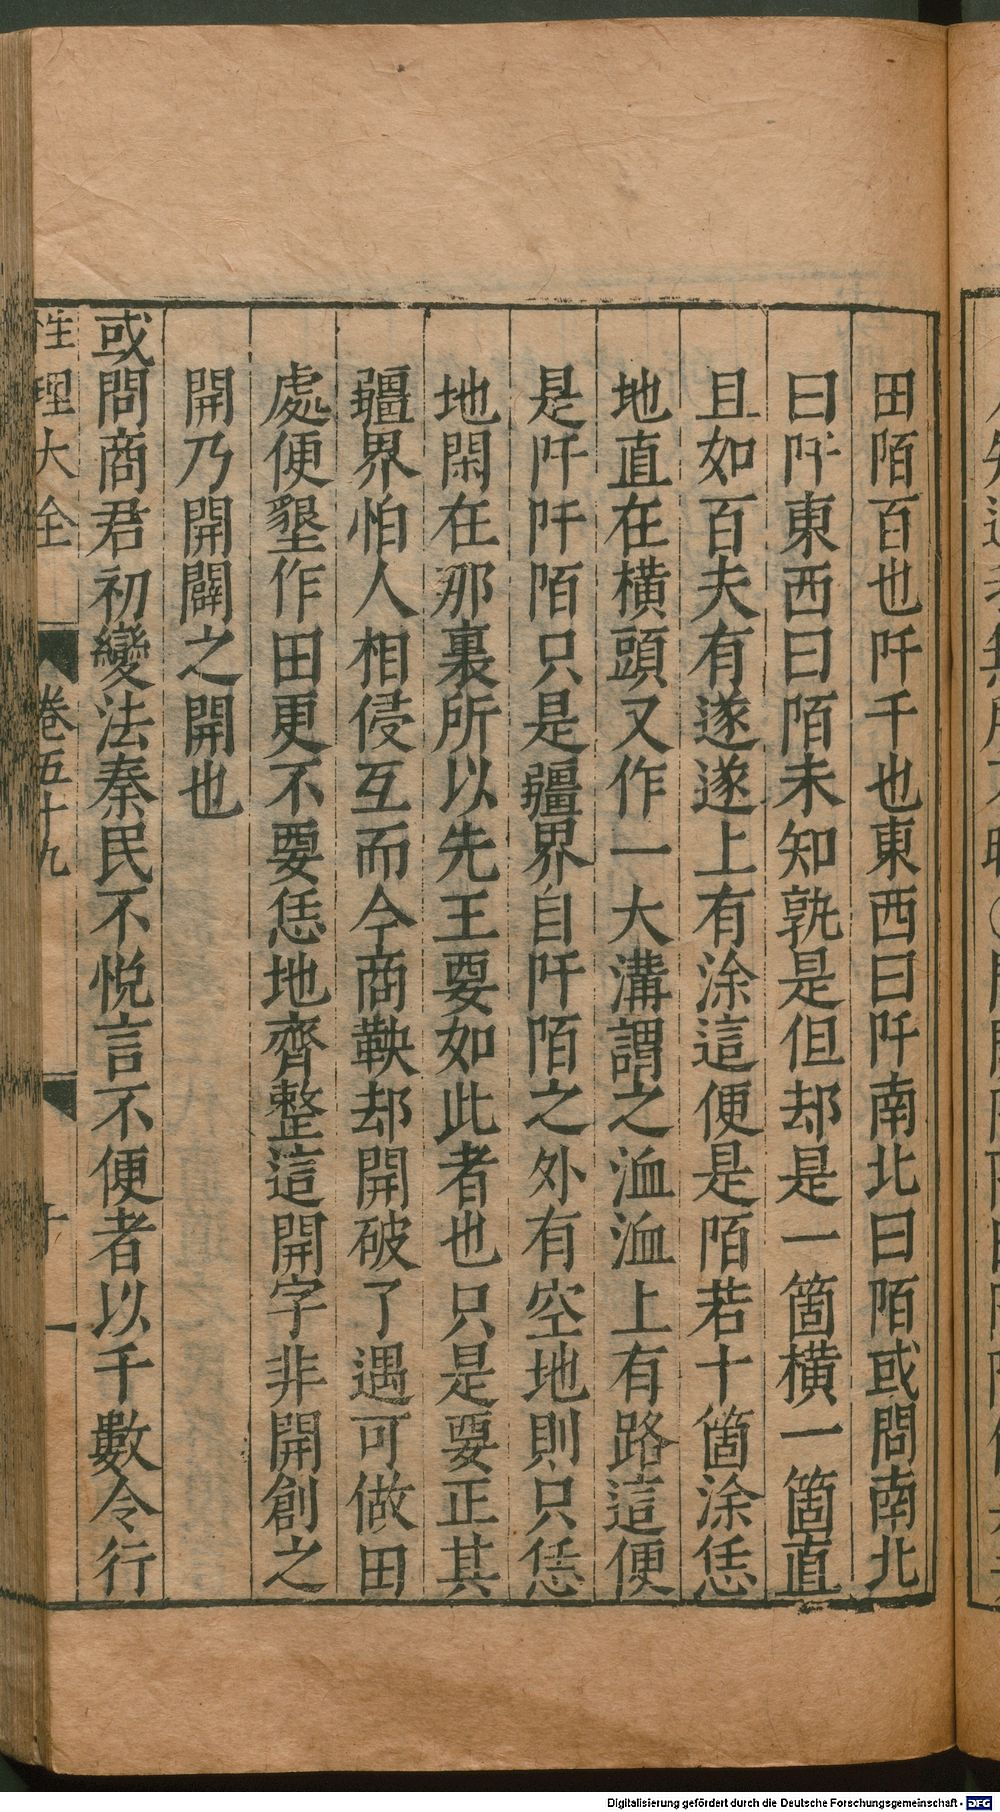 田陌百也阡千也東西曰阡南北曰陌或問南北
曰阡東西曰陌未知孰是但却是一箇橫一箇直
且如百夫有遂遂上有涂這便是陌若十箇涂恁
地直在橫頭又作一大溝謂之洫洫上有路這便
是阡阡陌只是疆界自阡陌之外有空地則只恁
地閑在那裏所以先王要如此者也只是要正其
疆界怕人相侵互而今商鞅却開破了遇可做田
處便墾作田更不要恁地齊整這開字非開創之
開乃開闢之開也
或問商君初變法秦民不悅言不便者以千數令行
性理大全 卷五十九
Digitalisierung gefördert durch die Deutsche Forschungsgemeinschaft - DFG